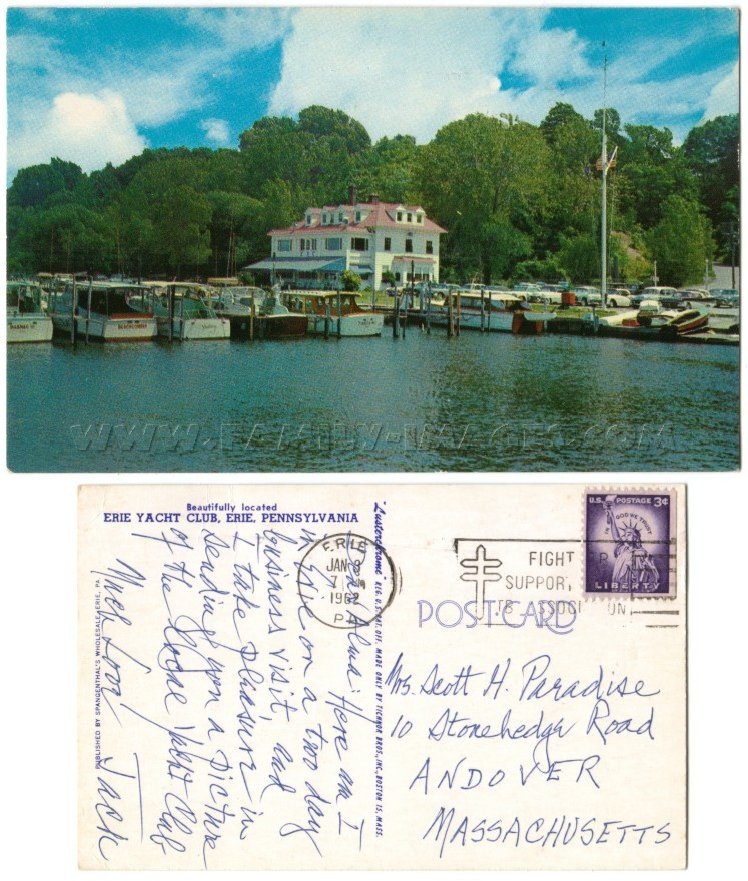 WWW.FAMILY-IMAGES.COM
Beautifully located
ERIE YACHT CLUB, ERIE, PENNSYLVANIA
Here am I
in Erie on a two day
business visit, and
I take pleasure in
sending you a picture
of the Yacht Club
Much Love,
Jack
PUBLISHED BY SPANGENTHAL'S WHOLESALE, ERIE, PA.
"Lusterchrome" REG. U.S. PAT. OFF. MADE ONLY BY TICHNOR BROS., INC., BOSTON 15, MASS.
ERIE
JAN 9
1962
PA
FIGHT
SUPPORT
TB ASSOCIATION
U.S. POSTAGE 3¢
IN GOD WE TRUST
LIBERTY
POSTCARD
Mrs. Scott H. Paradise
10 Stonehedge Road
ANDOVER
MASSACHUSETTS